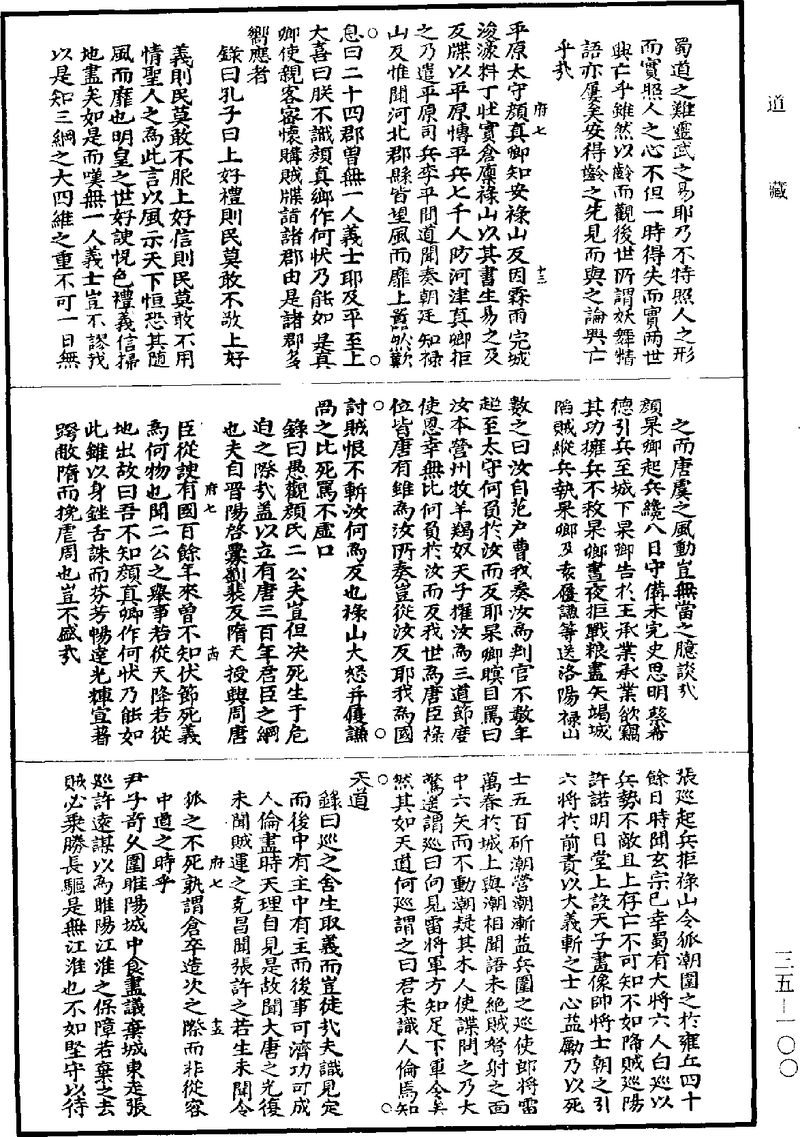 道藏
蜀道之難靈武之易耶乃不特照人之形
而實照人之心不但一時得失而實兩世
興亡乎雖然以齡而觀後世所謂妖舞精
語亦屢矣安得齡之先見而與之論興亡
乎哉
府七 十三
平原太守顏真卿知安祿山反因霖雨完城
浚濠料丁壯實倉廩祿山以其書生易之及
反牒以平原博平兵七千人防河津真卿拒
之乃遣平原司兵李平間道聞奏朝廷知祿
山反惟聞河北郡縣皆望風而靡上囂然歎
息曰二十四郡曾無一人義士耶及平至上
大喜曰朕不識顏真卿作何狀乃能如是真
卿使親客密懷購賊牒詣諸郡由是諸郡多
嚮應者
錄曰孔子曰上好禮則民莫敢不敬上好
義則民莫敢不服上好信則民莫敢不用
情聖人之為此言以風示天下恒恐其隨
風而靡也明皇之世好諛悅色禮義信掃
地盡矣如是而嘆無一人義士豈不謬哉
以是知三綱之大四維之重不可一日無
之而唐虞之風動豈無當之臆談哉
顏杲卿起兵纔八日守備未完史思明蔡希
德引兵至城下杲卿告於王承業承業欲竊
其功擁兵不救杲卿晝夜拒戰粮盡矢竭城
陷賊縱兵執杲卿及袁履謙等送洛陽祿山
數之曰汝自范戶曹我奏汝為判官不數年
超至太守何負於汝而反耶杲卿瞋目罵曰
汝本營州牧羊羯奴天子擢汝為三道節度
使恩幸無比何負於汝而反我世為唐臣祿
位皆唐有雖為汝所奏豈從汝反耶我為國
討賊恨不斬汝何為反也祿山大怒并履謙
咼之比死罵不虛口
錄曰愚觀顏氏二公夫豈但決死生于危
迫之際哉蓋以立有唐三百年君臣之綱
也夫自晉陽啓釁劉裴反隋天授興周唐
府七 古
臣從諛有國百餘年來曾不知伏節死義
為何物也聞二公之舉事若從天降若從
地出故曰吾不知顏真卿作何狀乃能如
此雖以身銼舌誅而芬芳暢達光輝宣著
踔敵隋而挽虐周也豈不盛哉
張巡起兵拒祿山令狐潮圍之於雍丘四十
餘日時聞玄宗已幸蜀有大將六人白巡以
兵勢不敵且上存亡不可知不如降賊巡陽
許諾明日堂上設天子畫像帥將士朝之引
六將於前責以大義斬之士心益勵乃以死
士五百斫潮營潮漸益兵圍之巡使郎將雷
萬春於城上與潮相聞語未絕賊弩射之面
中六矢而不動潮疑其木人使諜問之乃大
驚遙謂巡曰向見雷將軍方知足下軍令矣
然其如天道何巡謂之曰君未識人倫焉知
天道
錄曰巡之舍生取義而豈徒哉夫識見定
而後中有主中有主而後事可濟功可成
人倫盡時天理自見是故聞大唐之光復
未聞賊運之克昌聞張許之若生未聞令
狐之不死孰謂倉卒造次之際而非從容
府七 十五
中道之時乎
尹子奇久圍睢陽城中食盡議棄城東走張
巡許遠謀以為睢陽江淮之保障若棄之去
賊必乘勝長驅是無江淮也不如堅守以待
三五—一〇〇